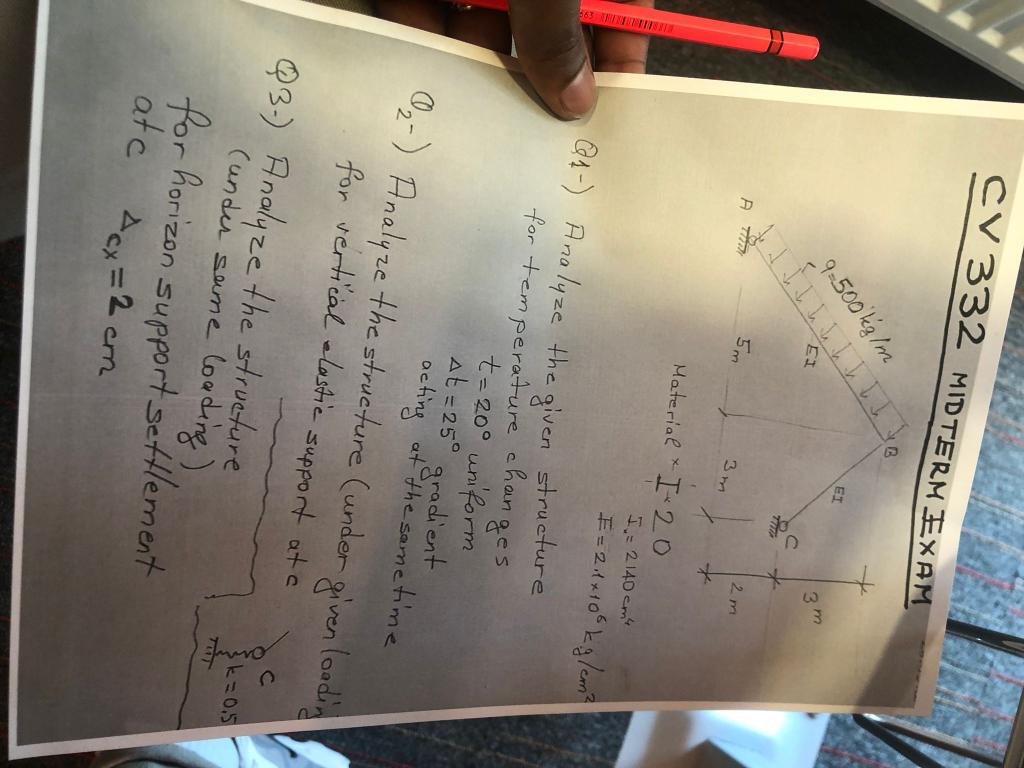 CV332 MIDTERM EXAM
q=500 kg/m
EI
B
EI
A
C
5m
3m
2m
3m
Material → I-20
I = 2140 cm⁴
E = 2.1×10⁶ kg/cm²
Q1-) Analyze the given structure
for temperature changes
t = 20° uniform
Δt = 25° gradient
acting at the same time
Q2-) Analyze the structure (under given loadin
for vertical elastic support at c
C
k=0,5
Q3-) Analyze the structure
(under same loading)
for horizon support settlement
at c Δcx = 2 cm
563